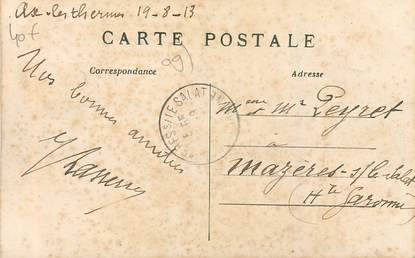 Ax-les-thermes 19-8-13
40f
CARTE POSTALE
Correspondance
Adresse
Nos
bonnes amitiés
Mme et Mr Peyret
à
Mazères-s/-le-Salat
Hte Garonne